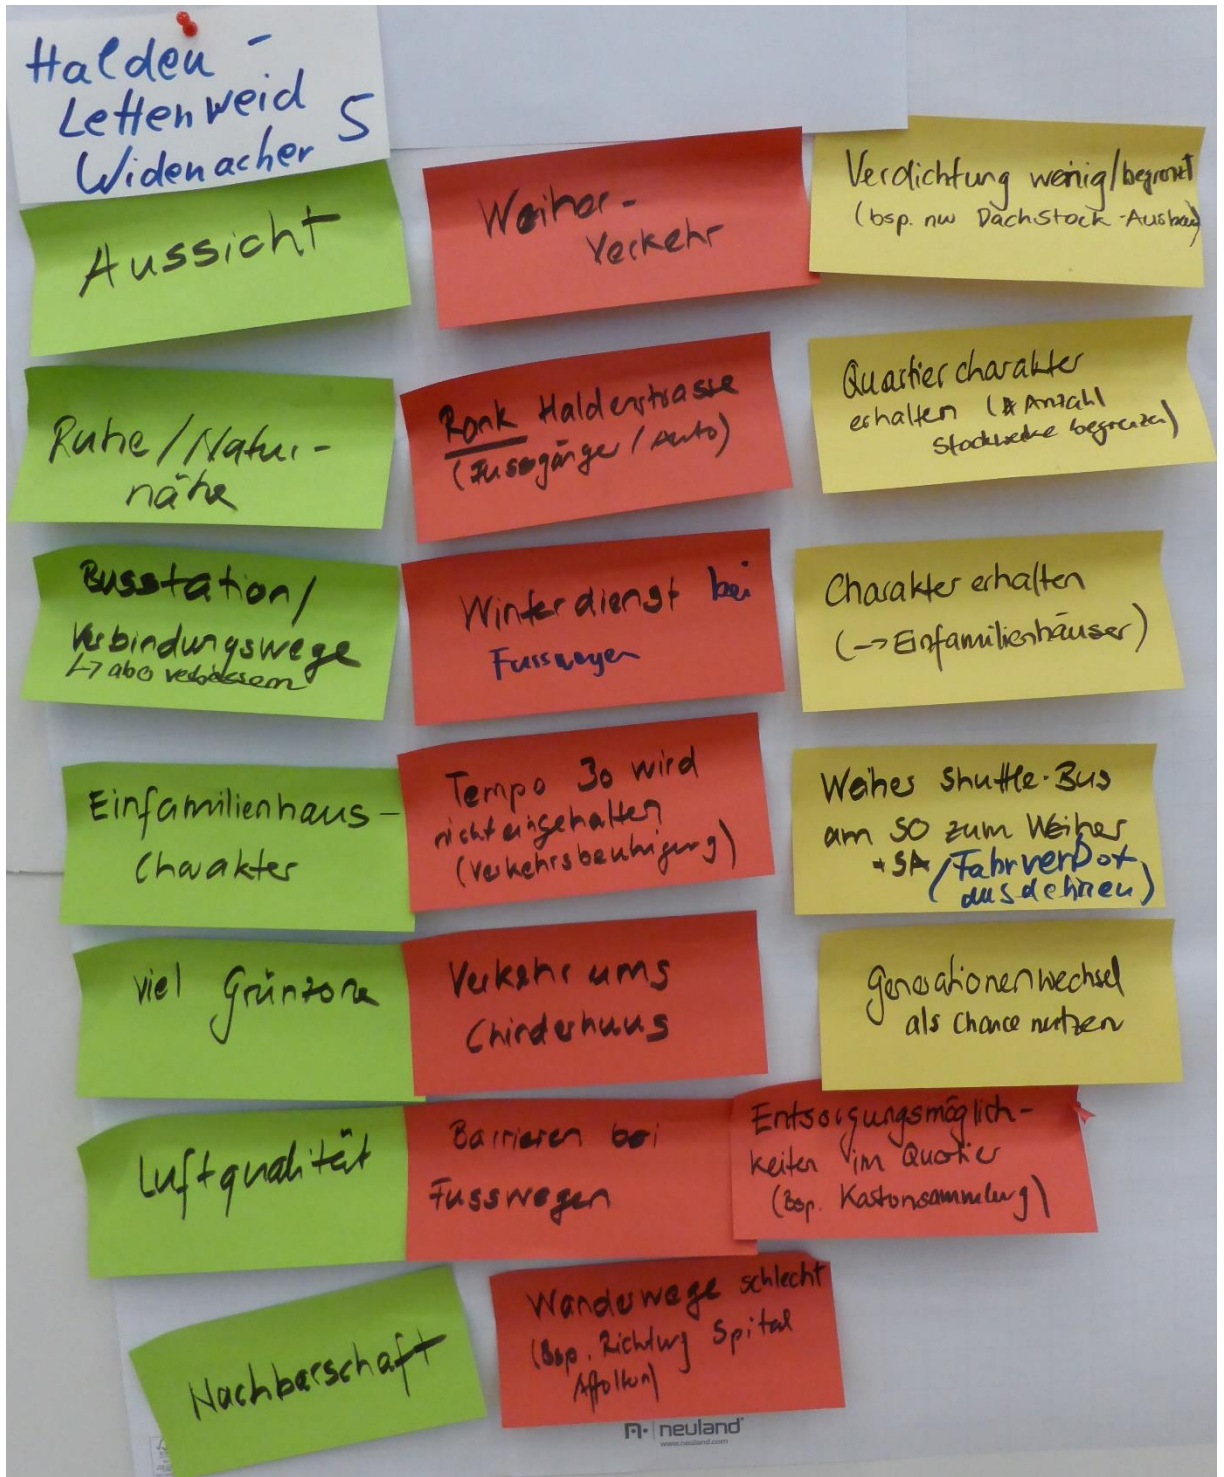 Halden -
Lettenweid
Widenacher 5
Aussicht
Ruhe/Natur-
nähe
Busstation/
Verbindungswege
↳ abo verbessern
Einfamilienhaus-
Charakter
viel Grünzone
Luftqualität
Nachbarschaft
Weiher-
Verkehr
Rank Haldenstrasse
(Fussgänger / Auto)
Winterdienst bei
Fusswegen
Tempo 30 wird
nicht eingehalten
(Verkehrsberuhigung)
Verkehr ums
Chinderhuus
Barrieren bei
Fusswegen
Entsorgungsmöglich-
keiten im Quartier
(Bsp. Kartonsammlung)
Wanderwege schlecht
(Bsp. Richtung Spital
Affoltern)
Verdichtung wenig/begrenzt
(bsp. nur Dachstock-Ausbau)
Quartiercharakter
erhalten (Anzahl
Stockwerke begrenzen)
Charakter erhalten
(→ Einfamilienhäuser)
Weiher Shuttle-Bus
am SO zum Weiher
+ SA (Fahrverbot
ausdehnen)
Generationenwechsel
als Chance nutzen
neuland
www.neuland.com